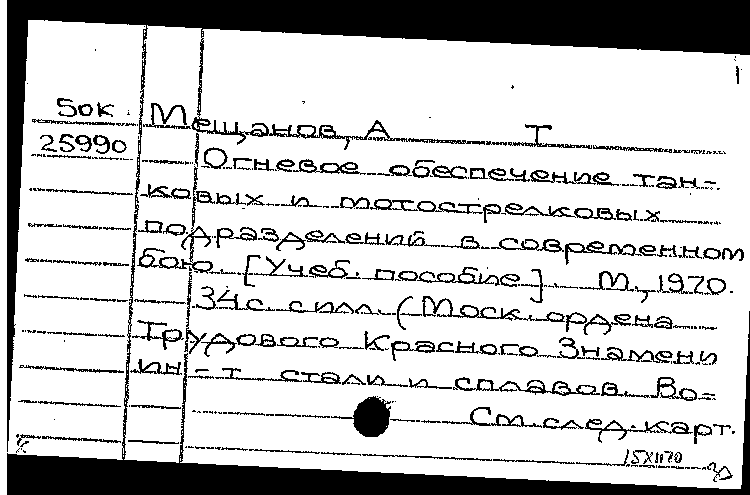 1
50к Мещанов, А Т
25990 Огневое обеспечение тан-
ковых и мотострелковых
подразделений в современном
бою. [Учеб. пособие]. М., 1970.
34с. с илл. (Моск. ордена
Трудового Красного Знамени
ин-т стали и сплавов. Во=
См. след. карт.